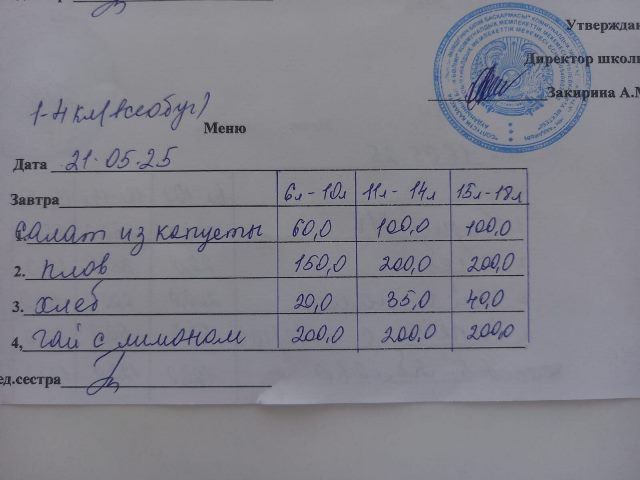 Утвержда
Директор школы
Закирина А.М
1-4 кл(всеобуч)
Меню
Дата 21.05.25
Завтра 6л-10л 11л-14л 15л-18л
1. Салат из капусты 60,0 100,0 100,0
2. плов 150,0 200,0 200,0
3. хлеб 20,0 35,0 40,0
4, чай с лимоном 200,0 200,0 200,0
ед.сестра